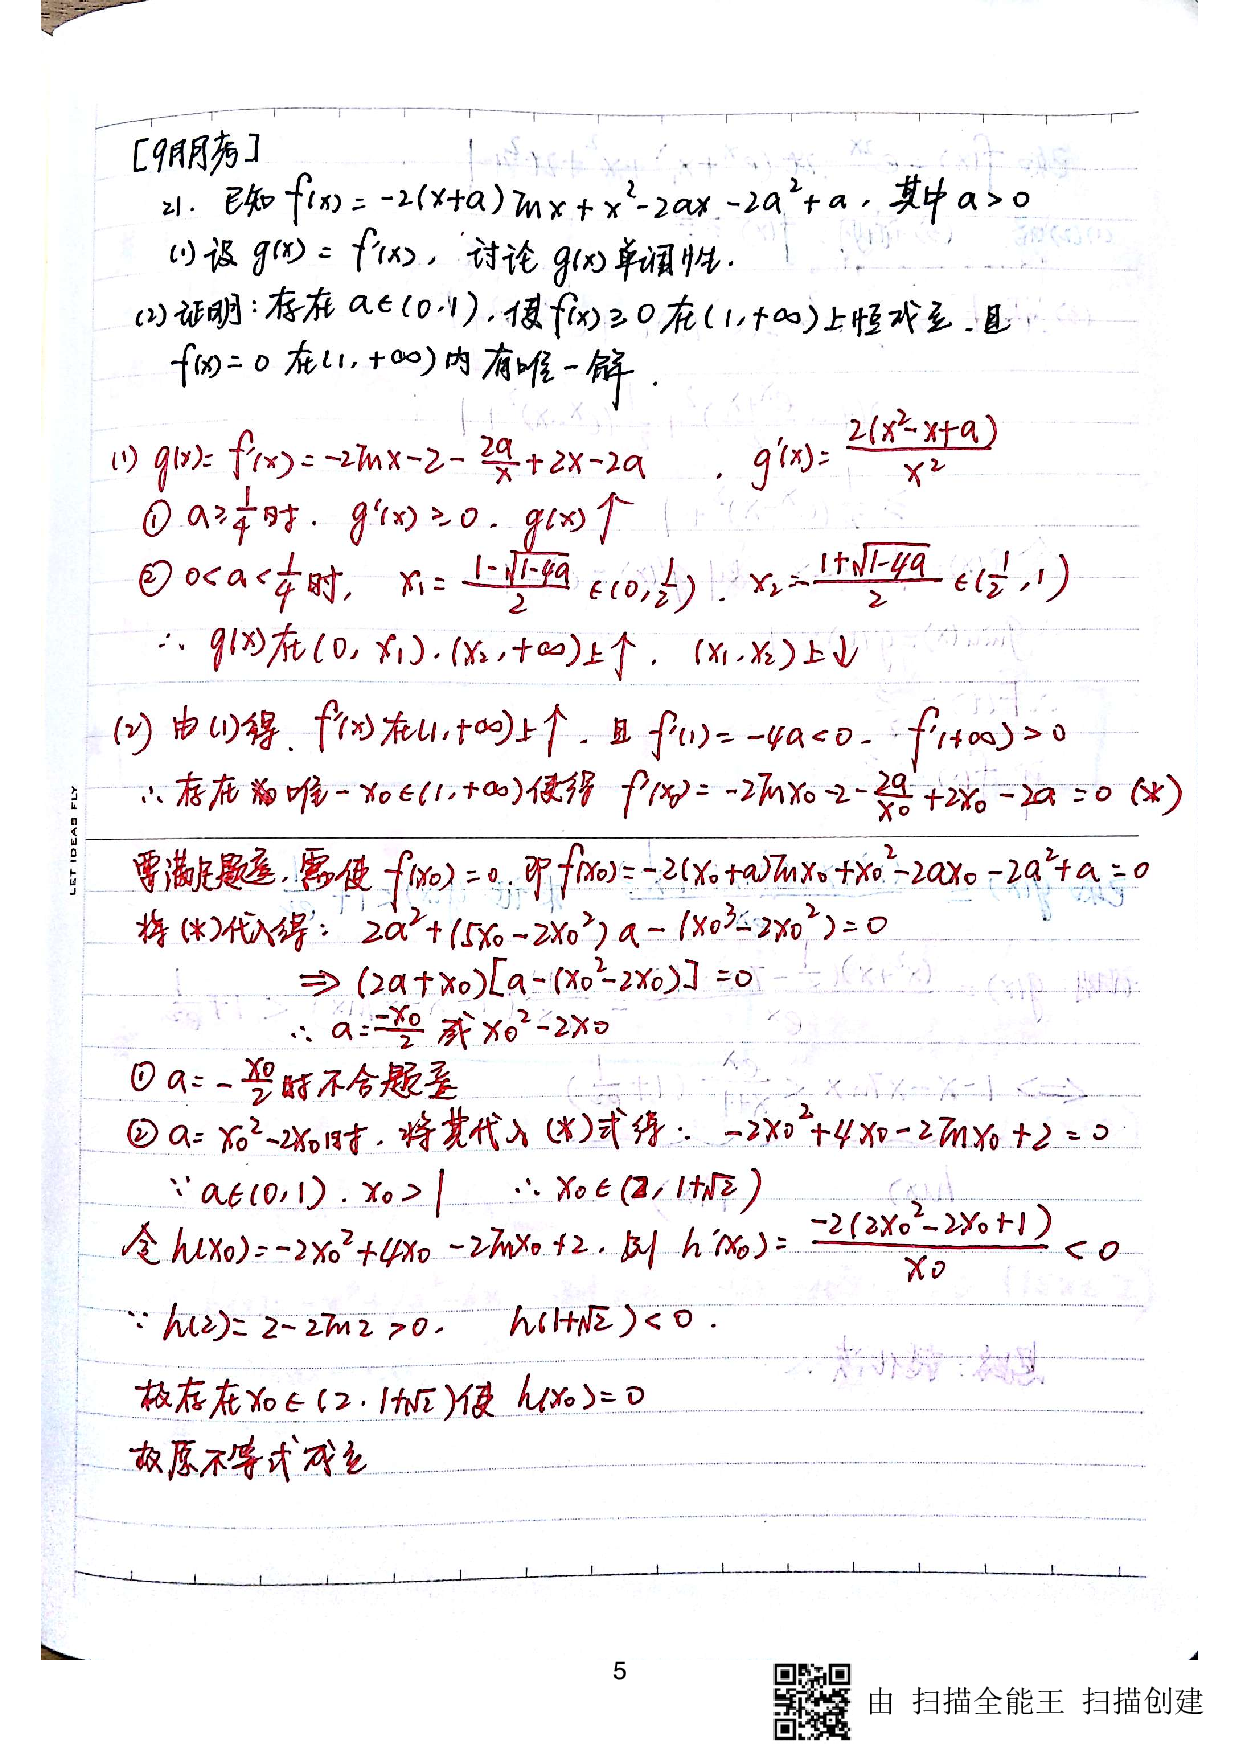 [9月月考]
21. 已知 f(x) = -2(x+a)lnx + x²-2ax-2a²+a, 其中 a>0
(1) 设 g(x) = f'(x), 讨论 g(x) 单调性.
(2) 证明: 存在 a∈(0,1), 使 f(x)≥0 在(1,+∞)上恒成立, 且
f(x)=0 在(1,+∞)内有唯一解.
(1) g(x)= f'(x) = -2lnx-2-2a/x+2x-2a , g'(x)= 2(x²-x+a)/x²
① a≥1/4时. g'(x)≥0. g(x)↑
② 0<a<1/4时, x₁= (1-√(1-4a))/2 ∈(0,1/2). x₂= (1+√(1-4a))/2 ∈(1/2,1)
∴ g(x)在(0,x₁),(x₂,+∞)上↑. (x₁,x₂)上↓
(2) 由(1)得, f'(x)在(1,+∞)上↑, 且 f'(1)=-4a<0. f'(+∞)>0
∴ 存在唯一x₀∈(1,+∞)使得 f'(x₀)= -2lnx₀-2-2a/x₀+2x₀-2a=0 (*)
LET IDEAS FLY
要满足题意, 需使 f(x₀)=0, 即 f(x₀)=-2(x₀+a)lnx₀+x₀²-2ax₀-2a²+a=0
将(*)代入得: 2a²+(5x₀-2x₀²)a-(x₀³-2x₀²)=0
⇒ (2a+x₀)[a-(x₀²-2x₀)]=0
∴ a=-x₀/2 或 x₀²-2x₀
① a=-x₀/2时不合题意
② a=x₀²-2x₀时, 将其代入(*)式得: -2x₀²+4x₀-2lnx₀+2=0
∵ a∈(0,1). x₀>1 ∴ x₀∈(2,1+√2)
令 h(x₀)=-2x₀²+4x₀-2lnx₀+2, 则 h'(x₀)= -2(2x₀²-2x₀+1)/x₀ <0
∵ h(2)=2-2ln2>0. h(1+√2)<0.
故存在x₀∈(2,1+√2)使 h(x₀)=0
故原不等式成立
5
由 扫描全能王 扫描创建